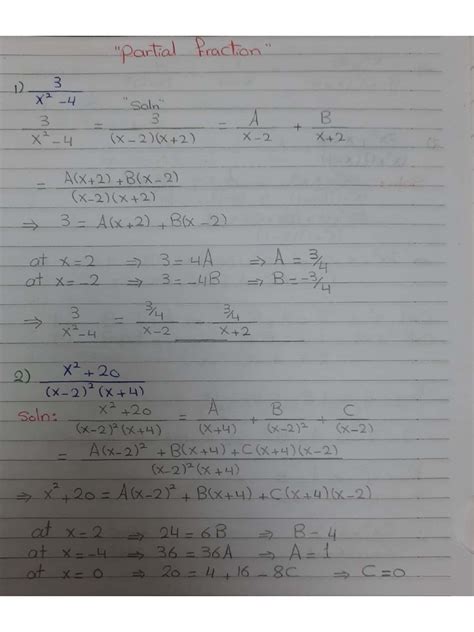 "Partial Fraction"
1) 3/(x² - 4)
"Soln"
3/(x² - 4) = 3/((x - 2)(x + 2)) = A/(x - 2) + B/(x + 2)
= (A(x+2) + B(x - 2))/((x - 2)(x + 2))
⇒ 3 = A(x+2) + B(x - 2)
at x = 2 ⇒ 3 = 4A ⇒ A = 3/4
at x = -2 ⇒ 3 = -4B ⇒ B = -3/4
⇒ 3/(x² - 4) = (3/4)/(x - 2) - (3/4)/(x + 2)
2) (x² + 20)/((x - 2)² (x + 4))
Soln: (x² + 20)/((x - 2)² (x + 4)) = A/(x + 4) + B/(x - 2)² + C/(x - 2)
= (A(x - 2)² + B(x + 4) + C(x + 4)(x - 2))/((x - 2)² (x + 4))
⇒ x² + 20 = A(x - 2)² + B(x + 4) + C(x + 4)(x - 2)
at x = 2 ⇒ 24 = 6B ⇒ B = 4
at x = -4 ⇒ 36 = 36A ⇒ A = 1
at x = 0 ⇒ 20 = 4 + 16 - 8C ⇒ C = 0